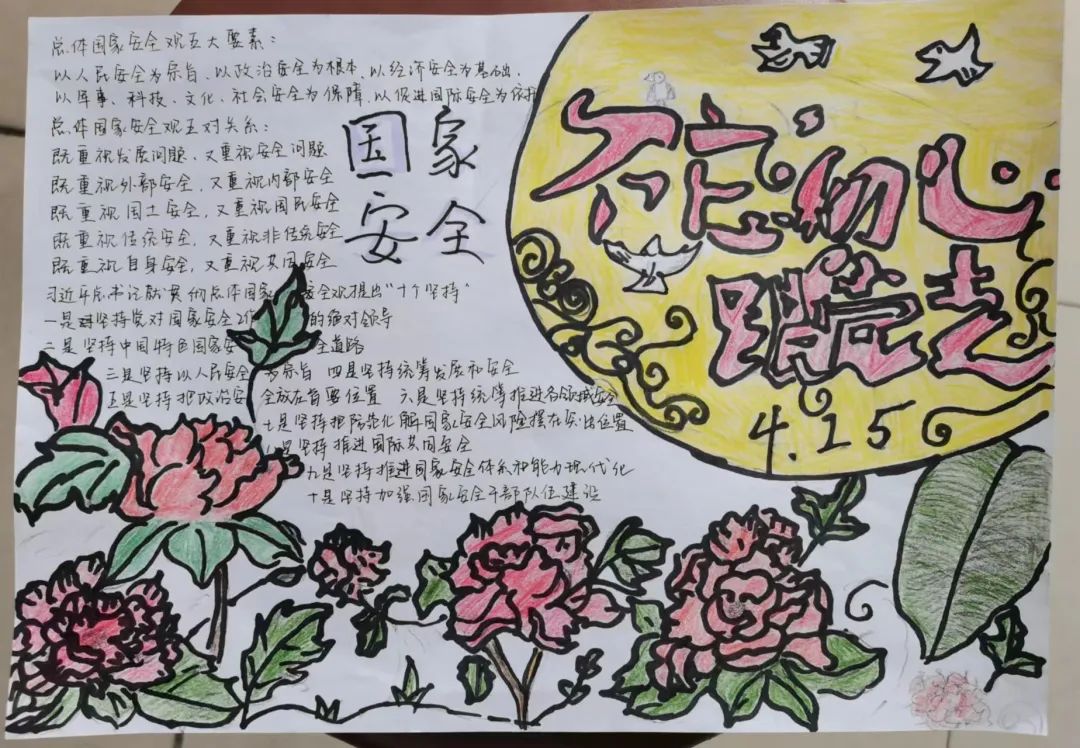 总体国家安全观五大要素：
以人民安全为宗旨、以政治安全为根本、以经济安全为基础、
以军事、科技、文化、社会安全为保障、以促进国际安全为依托
总体国家安全观五对关系：
既重视发展问题、又重视安全问题
既重视外部安全，又重视内部安全
既重视国土安全，又重视国民安全
既重视传统安全，又重视非传统安全
既重视自身安全，又重视共同安全
习近平总书记就贯彻总体国家安全观提出"十个坚持"
一是坚持党对国家安全工 的绝对领导
二是坚持中国特色国家安 全道路
三是坚持以人民安全为宗旨 四是坚持统筹发展和安全
五是坚持把政治安 全放在首要位置 六是坚持统筹推进各领域安全
七是坚持把防范化解国家安全风险摆在突出位置
是坚持推进国际共同安全
九是坚持推进国家安全体系和能力现代化
十是坚持加强国家安全干部队伍建设
国家
安全
不忘初心
跟党走
4.15